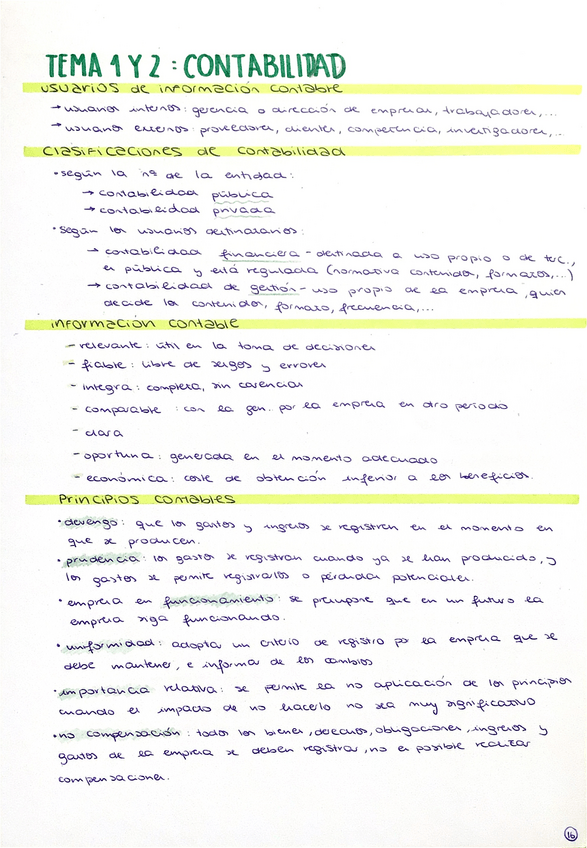 TEMA 1 Y 2 : CONTABILIDAD
usuarios de información contable
→ usuarios internos: gerencia o dirección de empresas, trabajadores,...
→ usuarios externos: proveedores, clientes, competencia, investigadores,...
Clasificaciones de contabilidad
• según la nº de la entidad:
→ contabilidad pública
→ contabilidad privada
• según los usuarios destinatarios:
→ contabilidad financiera - destinada a uso propio o de terc.,
es pública y está regulada (normativa contenidos, formatos,...)
→ contabilidad de gestión - uso propio de la empresa, quien
decide los contenidos, formato, frecuencia,...
información contable
- relevante: útil en la toma de decisiones
- fiable: libre de sesgos y errores
- integra: completa, sin carencias
- comparable : con la gen. por la empresa en otro periodo
- clara
- oportuna: generada en el momento adecuado
- económica: coste de obtención inferior a los beneficios.
Principios contables
• devengo: que los gastos y ingresos se registren en el momento en
que se producen.
• prudencia: los gastos se registran cuando ya se han producido, y
los gastos se permite registrarlos o pérdida potenciales.
• empresa en funcionamiento: se presupone que en un futuro la
empresa siga funcionando.
• uniformidad: adopta un criterio de registro por la empresa que se
debe mantener, e informa de los cambios
• importancia relativa: se permite la no aplicación de los principios
cuando el impacto de no hacerlo no sea muy significativo
• no compensación: todos los bienes, derechos, obligaciones, ingresos y
gastos de la empresa se deben registrar, no es posible realizar
compensaciones.
16